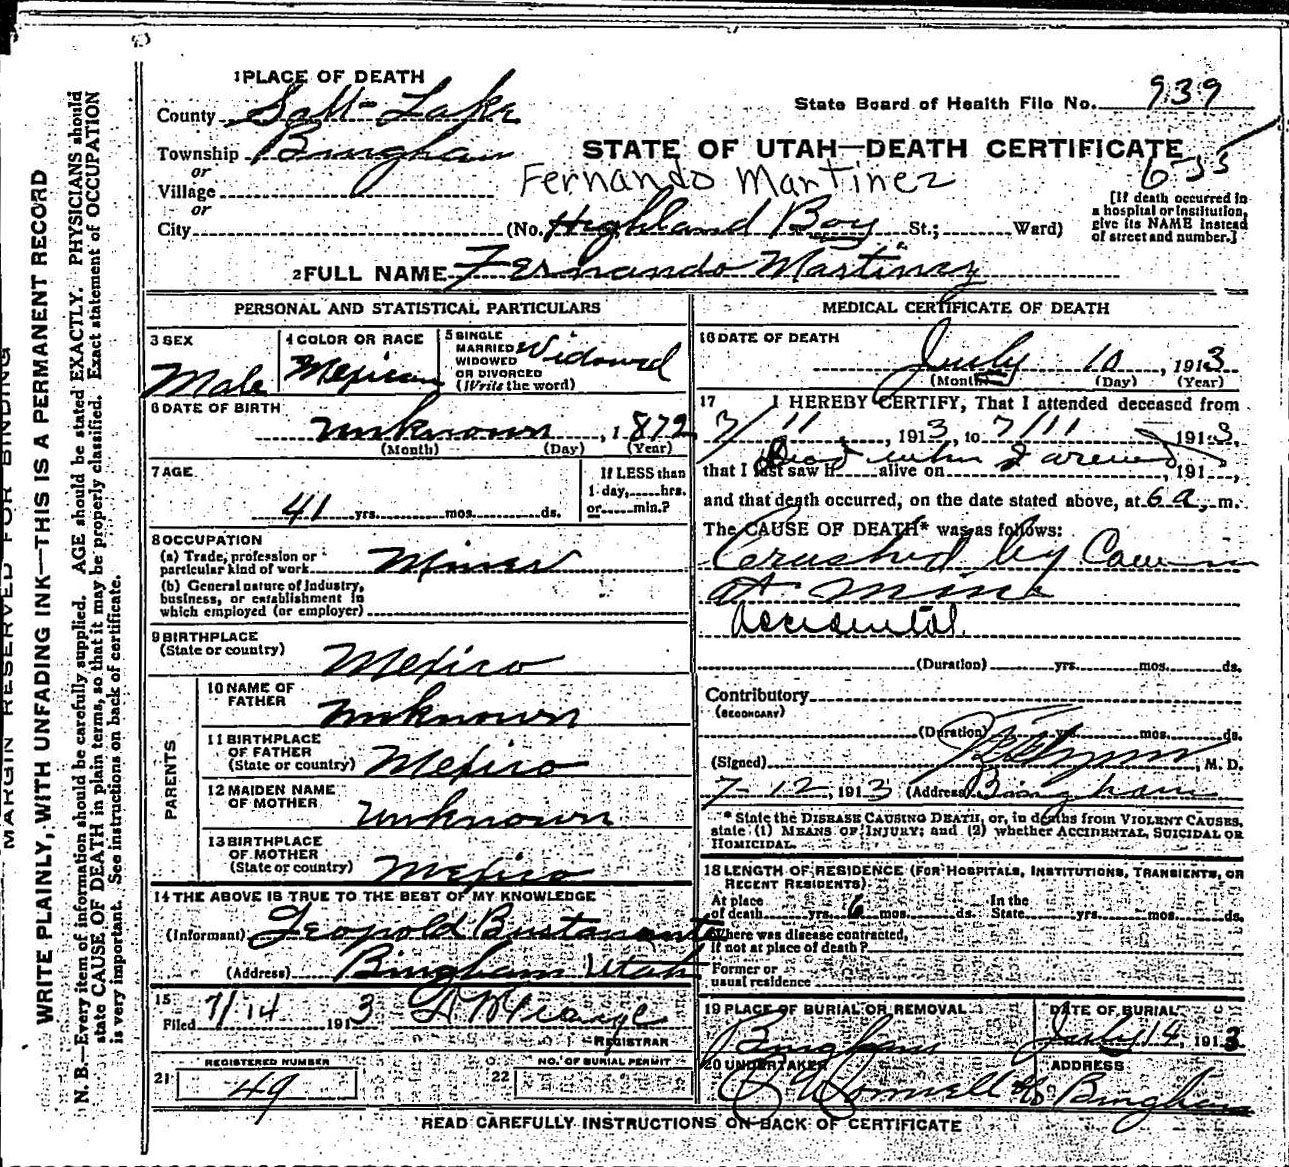 1 PLACE OF DEATH
County Salt-Lake
State Board of Health File No. 939
Township Bingham
or
STATE OF UTAH—DEATH CERTIFICATE
635
Village
Fernando Martinez
or
City (No. Highland Boy St.; Ward)
[If death occurred in
a hospital or institution,
give its NAME instead
of street and number.]
2 FULL NAME Fernando Martinez
PERSONAL AND STATISTICAL PARTICULARS
3 SEX
Male
4 COLOR OR RACE
Mexican
5 SINGLE
MARRIED
WIDOWED
OR DIVORCED
(Write the word)
Widowed
6 DATE OF BIRTH
unknown, 1872
(Month) (Day) (Year)
7 AGE
41 yrs. mos. ds.
If LESS than
1 day, hrs.
or min.?
8 OCCUPATION
(a) Trade, profession or
particular kind of work Miner
(b) General nature of industry,
business, or establishment in
which employed (or employer)
9 BIRTHPLACE
(State or country) Mexico
PARENTS
10 NAME OF
FATHER unknown
11 BIRTHPLACE
OF FATHER
(State or country) Mexico
12 MAIDEN NAME
OF MOTHER unknown
13 BIRTHPLACE
OF MOTHER
(State or country) Mexico
14 THE ABOVE IS TRUE TO THE BEST OF MY KNOWLEDGE
(Informant) Leopold Bustamante
(Address) Bingham Utah
15
Filed 7/14 1913
REGISTRAR
REGISTERED NUMBER
21 49
NO. OF BURIAL PERMIT
22
MEDICAL CERTIFICATE OF DEATH
16 DATE OF DEATH
July 10, 1913
(Month) (Day) (Year)
17 I HEREBY CERTIFY, That I attended deceased from
7/11, 1913, to 7/11 1913,
that I last saw h alive on Dead when I arrived, 191 ,
and that death occurred, on the date stated above, at 6 a. m.
The CAUSE OF DEATH* was as follows:
Crushed by Cave in
At mine
Accidental
(Duration) yrs. mos. ds.
Contributory
(SECONDARY)
(Duration) yrs. mos. ds.
(Signed) , M. D.
7-12, 1913 (Address) Bingham
* State the DISEASE CAUSING DEATH, or, in deaths from VIOLENT CAUSES,
state (1) MEANS OF INJURY; and (2) whether ACCIDENTAL, SUICIDAL OR
HOMICIDAL.
18 LENGTH OF RESIDENCE (FOR HOSPITALS, INSTITUTIONS, TRANSIENTS, OR
RECENT RESIDENTS)
At place
of death yrs. 6 mos. ds.
In the
State yrs. mos. ds.
Where was disease contracted,
if not at place of death?
Former or
usual residence
19 PLACE OF BURIAL OR REMOVAL
Bingham
DATE OF BURIAL
July 14, 1913
20 UNDERTAKER
O'Donnell & Co
ADDRESS
Bingham
READ CAREFULLY INSTRUCTIONS ON BACK OF CERTIFICATE
MARGIN RESERVED FOR BINDING
WRITE PLAINLY, WITH UNFADING INK—THIS IS A PERMANENT RECORD
N. B.—Every item of information should be carefully supplied. AGE should be stated EXACTLY. PHYSICIANS should
state CAUSE OF DEATH in plain terms, so that it may be properly classified. Exact statement of OCCUPATION
is very important. See instructions on back of certificate.